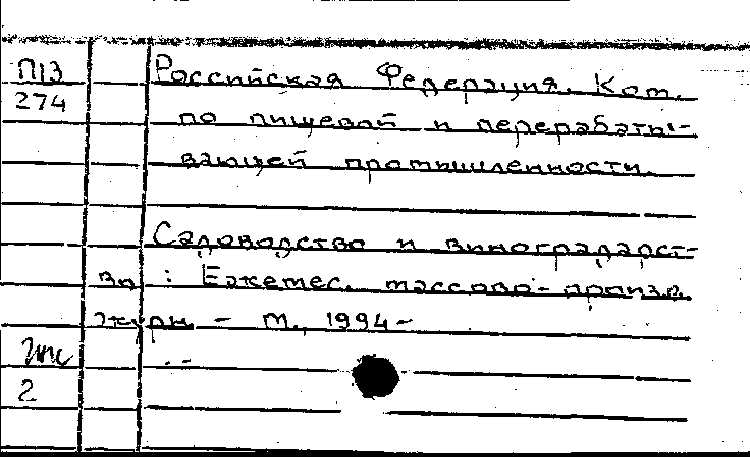 П13 Российская Федерация. Ком.
274 по пищевой и перерабаты-
вающей промышленности.
Садоводство и виноградарст-
во : Ежемес. массово-произв.
журн. – М., 1994–
2